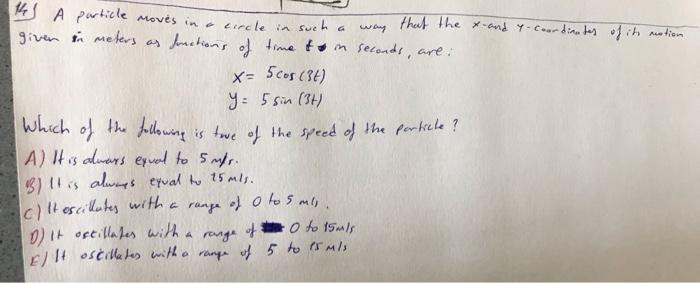 14) A particle moves in a circle in such a way that the x-and y-coordinates of its motion
given in meters as functions of time t in seconds, are:
x= 5cos(3t)
y= 5 sin (3t)
Which of the following is true of the speed of the particle?
A) It is always equal to 5 m/s.
B) It is always equal to 15 m/s.
C) It oscillates with a range of 0 to 5 m/s.
D) It oscillates with a range of 0 to 15m/s
E) It oscillates with a range of 5 to 15 m/s